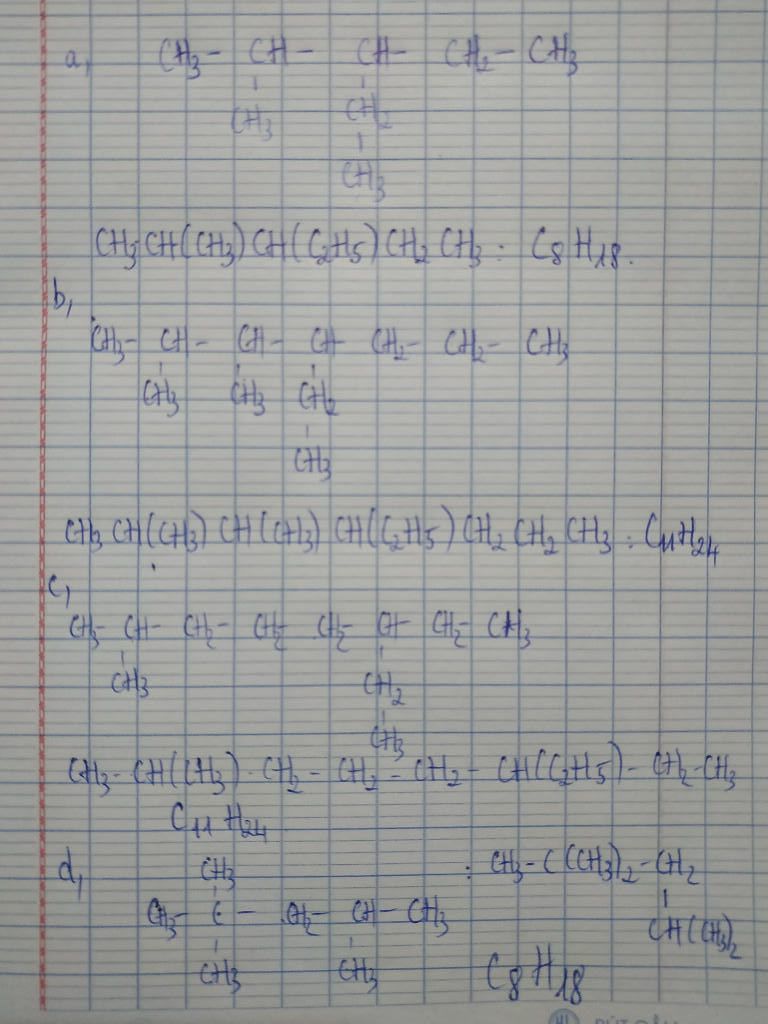 a, CH3- CH- CH- CH2- CH3
CH3 CH2
CH3
CH3 CH(CH3) CH(C2H5) CH2 CH3 : C8H18.
b,
CH3- CH- CH- CH- CH2- CH2- CH3
CH3 CH3 CH2
CH3
CH3 CH(CH3) CH(CH3) CH(C2H5) CH2 CH2 CH3 : C11H24
c,
CH3- CH- CH2- CH2- CH2- CH- CH2- CH3
CH3 CH2
CH3
CH3- CH(CH3)- CH2- CH2- CH2- CH(C2H5)- CH2- CH3
C11H24
d, CH3 : CH3- C(CH3)2- CH2
CH3- C- CH2- CH- CH3 CH(CH3)2
CH3 CH3 C8H18